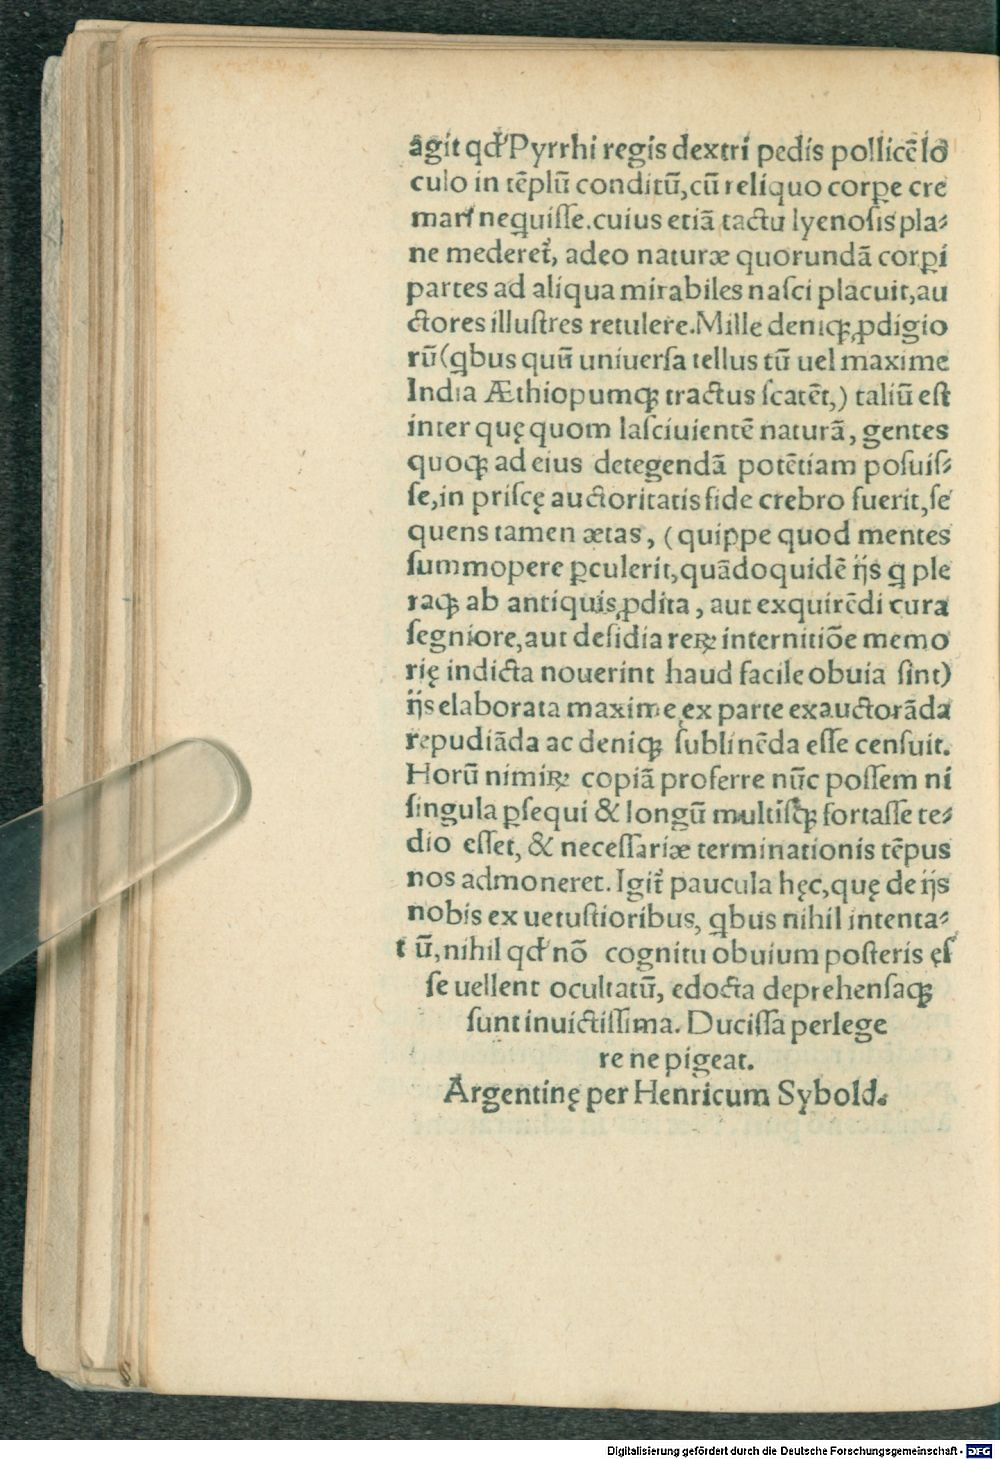 agit qđ Pyrrhi regis dextri pedis pollicē lo
culo in tēplū conditū, cū reliquo corꝑe cre
mari neꝗuiſſe. cuius etiā tactu lyenoſis pla⸗
ne mederet᷑, adeo naturæ quorundā corꝑi
partes ad aliqua mirabiles naſci placuit, au
ctores illuſtres retulere. Mille deniqꝫ ꝓdigio
rū (ꝗbus quū uniuerſa tellus tū uel maxime
India Æthiopumqꝫ tractus ſcatēt,) taliū eſt
inter quę quom laſciuientē naturā, gentes
quoqꝫ ad eius detegendā potētiam poſuiſ⸗
ſe, in priſcę auctoritatis fide crebro fuerit, ſe
quens tamen ætas, (quippe quod mentes
ſummopere ꝑculerit, quādoquidē ijs ꝗ ple
raqꝫ ab antiquis ꝓdita, aut exquirēdi cura
ſegniore, aut deſidia reꝝ internitiōe memo
rię indicta nouerint haud facile obuia ſint)
ijs elaborata maxime ex parte exauctorāda
repudiāda ac deniqꝫ ſublinēda eſſe cenſuit.
Horū nimiꝝ copiā proferre nūc poſſem ni
ſingula ꝑſequi & longū multiſqꝫ fortaſſe te⸗
dio eſſet, & neceſſariæ terminationis tēpus
nos admoneret. Igit᷑ paucula hęc, quę de ijs
nobis ex uetuſtioribus, ꝗbus nihil intenta⸗
tū, nihil qđ nō cognitu obuium poſteris eſ
ſe uellent ocultatū, edocta deprehenſaqꝫ
ſunt inuictiſſima. Duciſſa perlege
re ne pigeat.
Argentinę per Henricum Sybold.
Digitalisierung gefördert durch die Deutsche Forschungsgemeinschaft - DFG